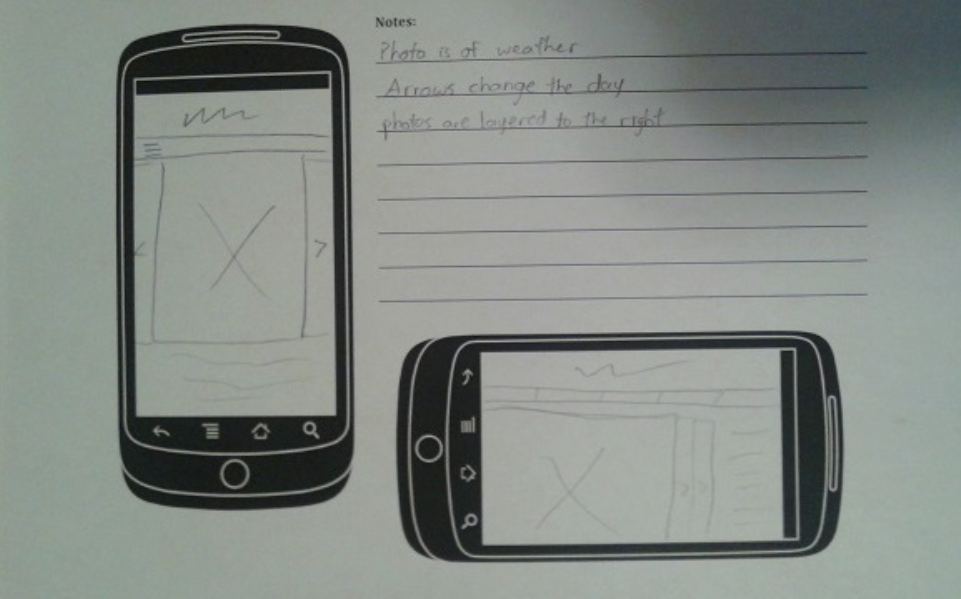 Notes:
Photo is of weather
Arrows change the day
photos are layered to the right